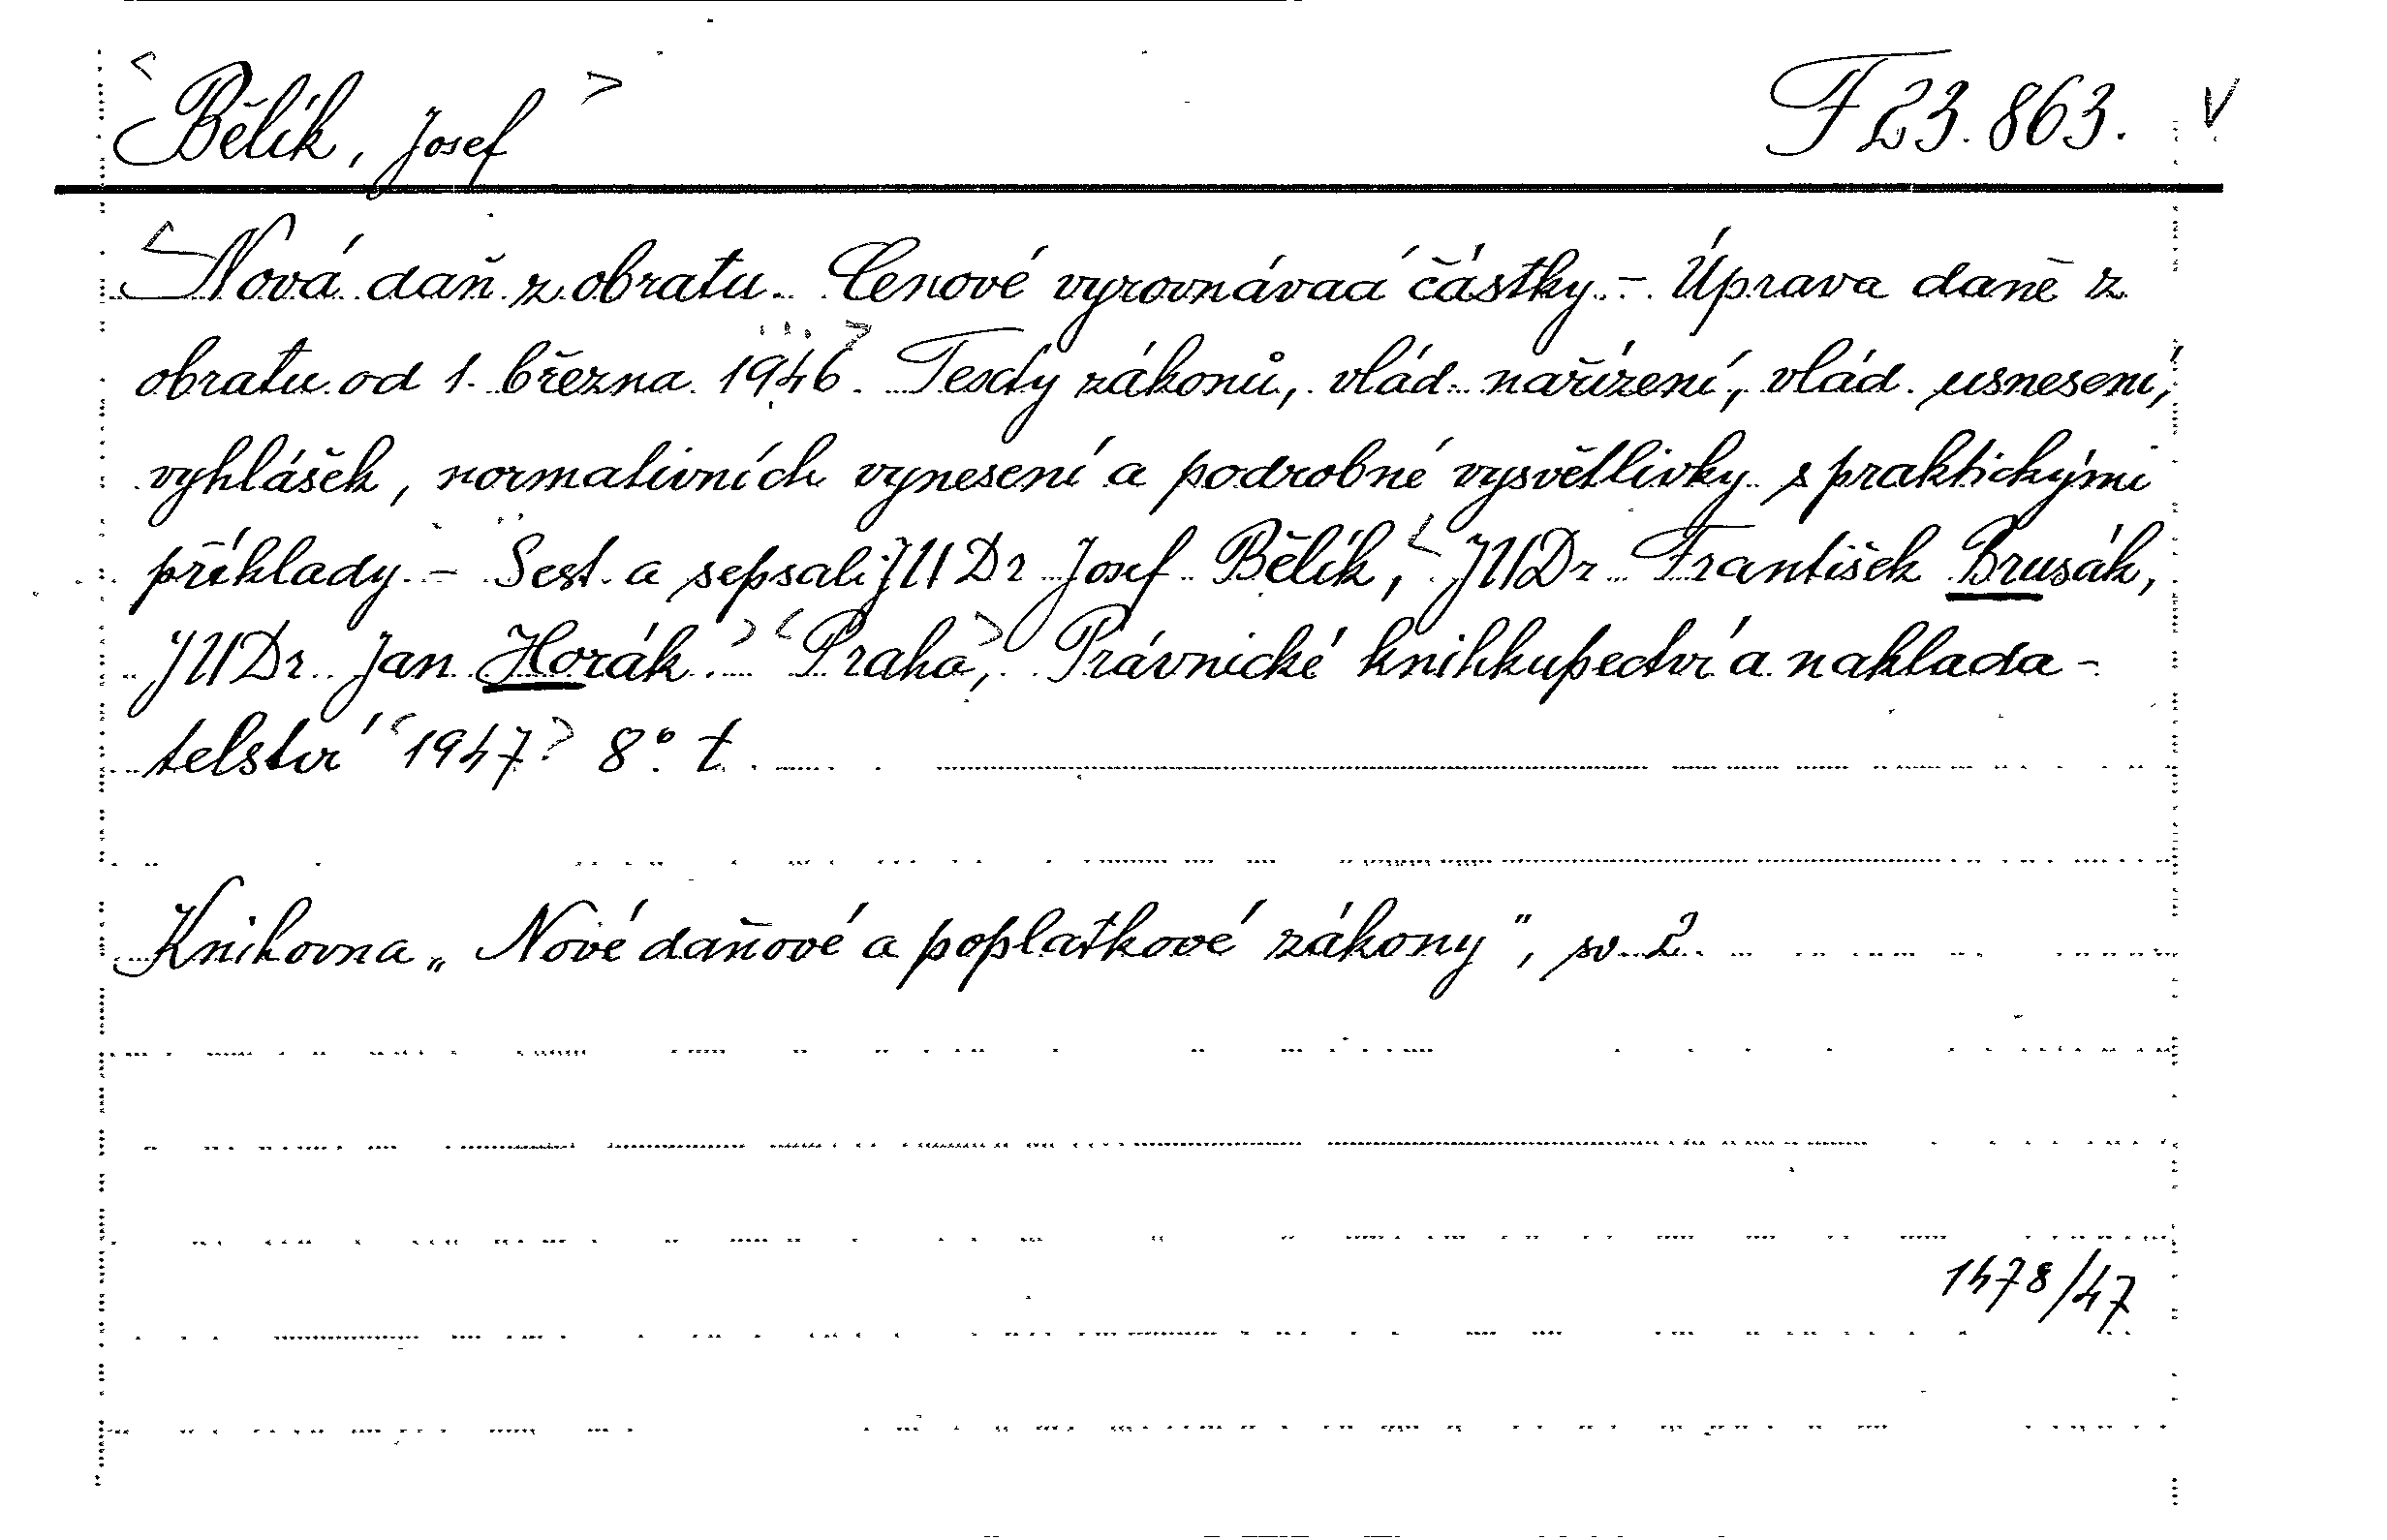 <Bělík, Josef> F 23.863. V
<Nová daň z obratu. Cenové vyrovnávací částky. - Úprava daně z
obratu od 1. března 1946>. Texty zákonů, vlád. nařízení, vlád. usnesení,
vyhlášek, normativních vynesení a podrobné vysvětlivky s praktickými
příklady. - Sest. a sepsali JUDr Josef Bělík, <JUDr František Brusák,
JUDr. Jan Horák.> <Praha>, Právnické knihkupectví a naklada-
telství <1947> 8°. t.
Knihovna „Nové daňové a poplatkové zákony", sv. 2.
1478/47